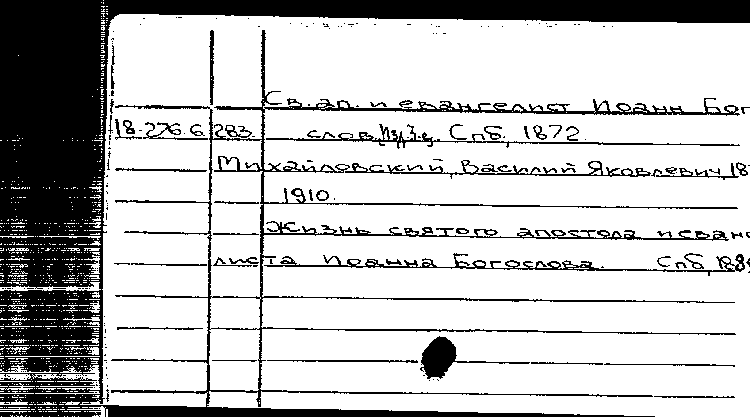 Св. ап. и евангелист Иоанн Бог
18.276.6.283. слов. Изд. 3-е. Спб., 1872.
Михайловский, Василий Яковлевич, 18
1910.
Жизнь святого апостола и еванг
листа Иоанна Богослова. Спб., 188